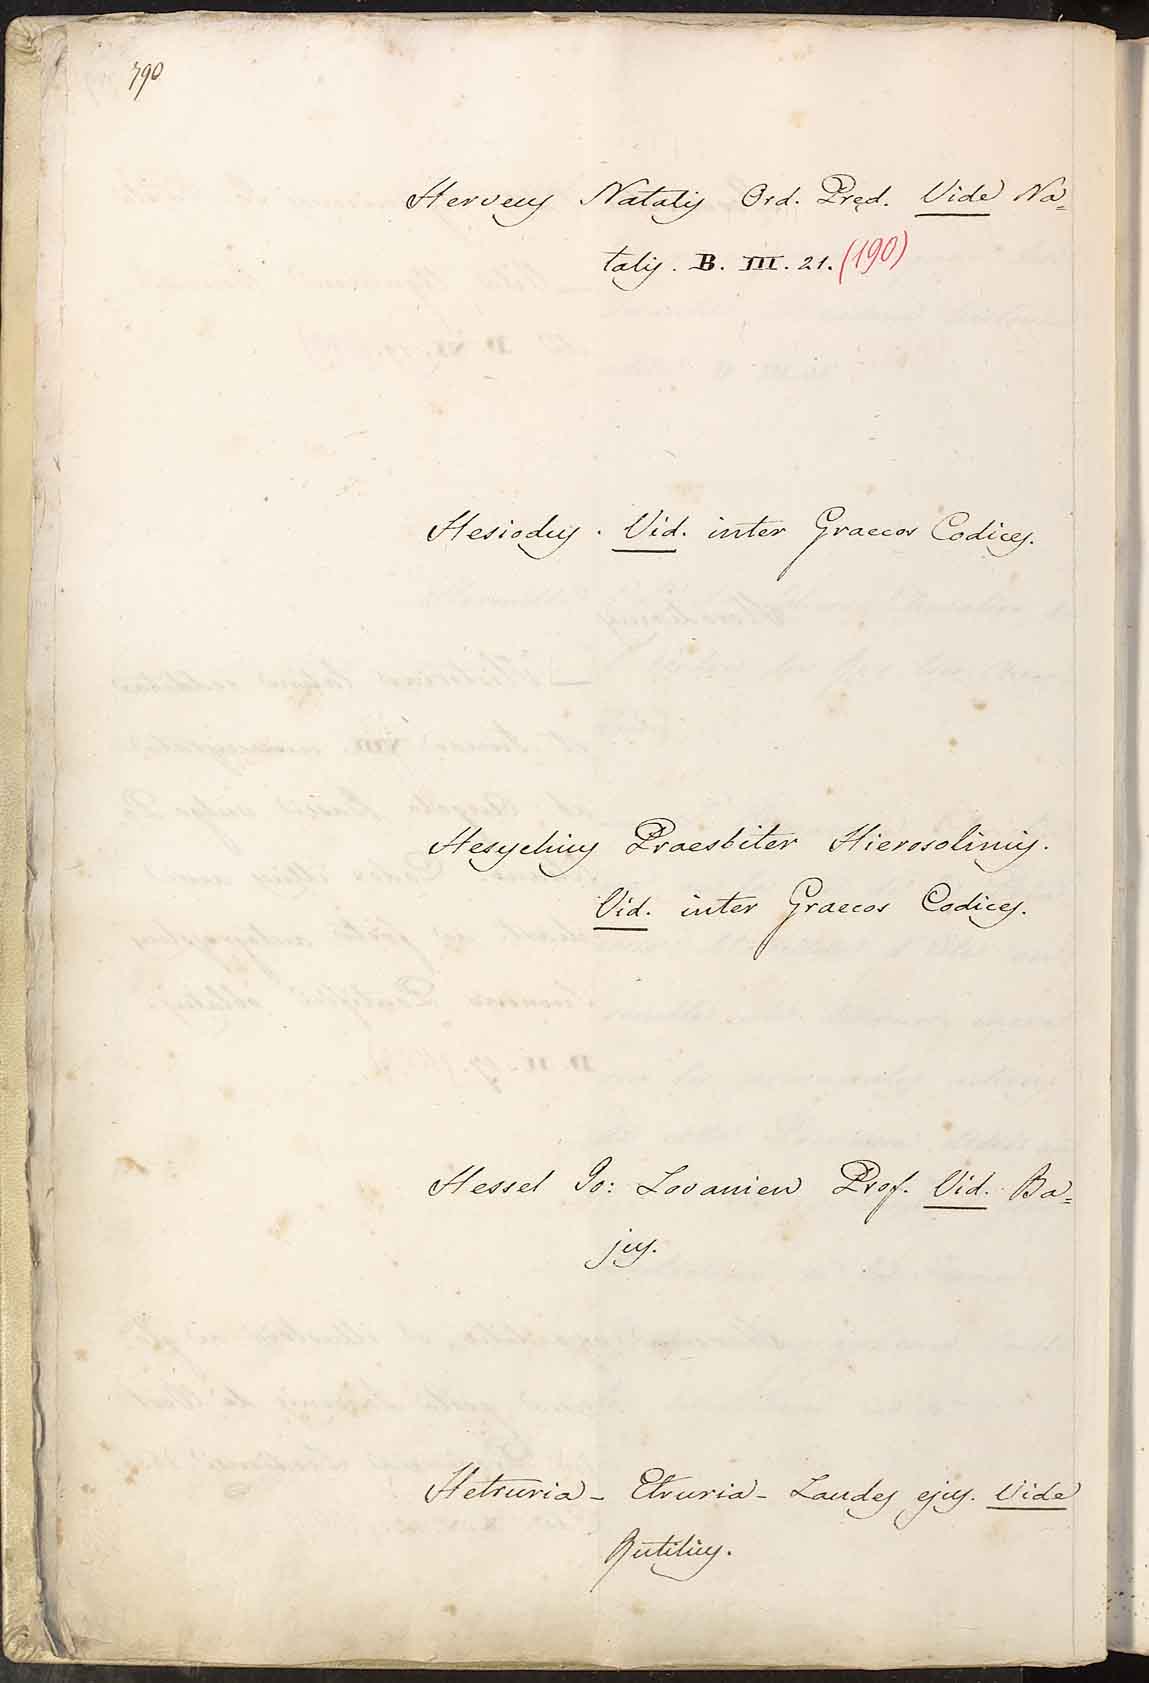 790
Herveus Natalis Ord. Pręd. Vide Na=
talis. B. III. 21. (190)
Hesiodus. Vid. inter Graecos Codices.
Hesychius Praesbiter Hierosolimis.
Vid. inter Graecos Codices.
Hessel Jo: Lovanien Prof. Vid. Ba=
jus.
Hetruria - Etruria - Laudes ejus. Vide
Rutilius.